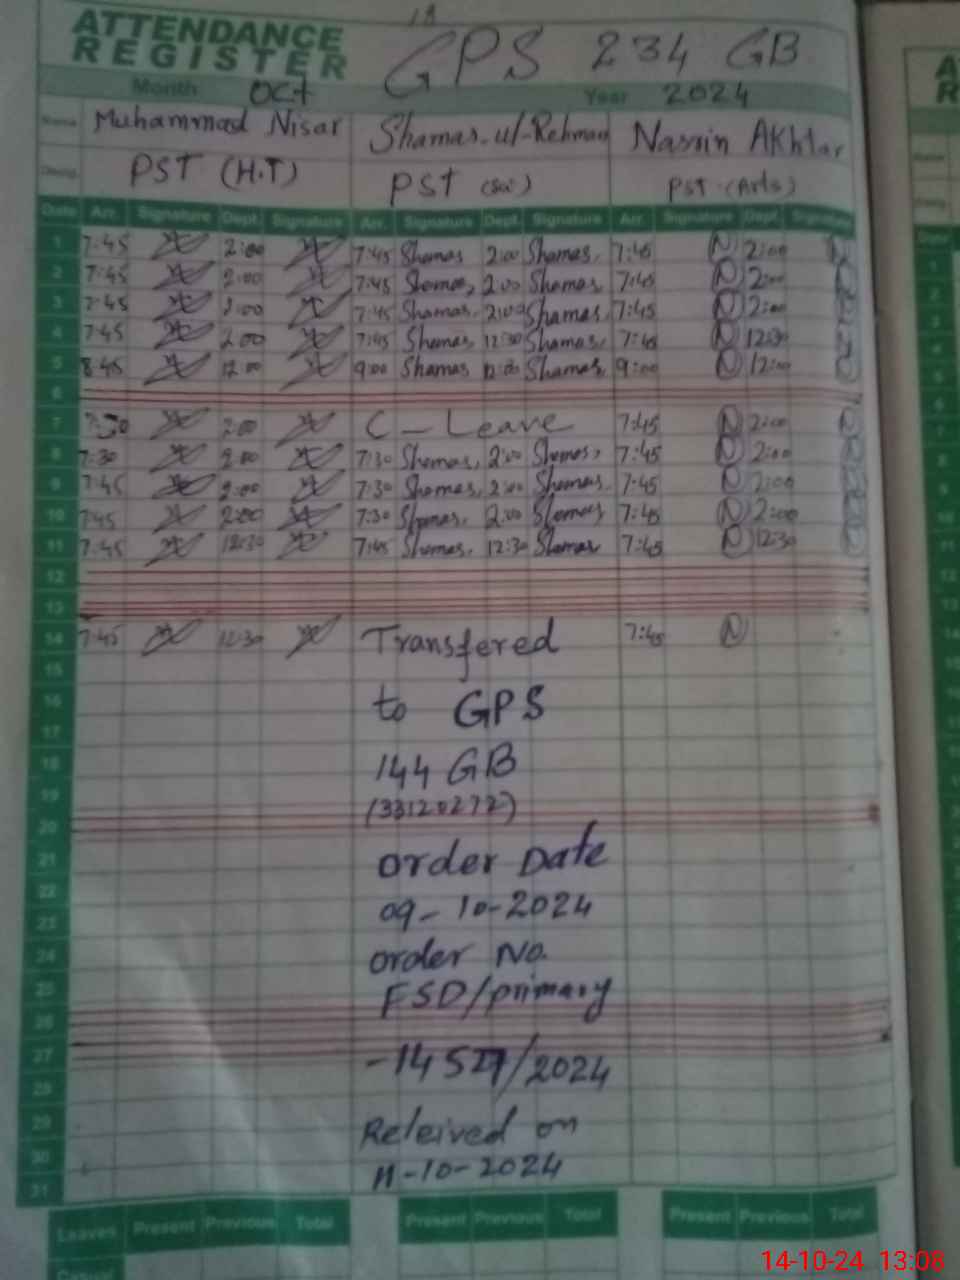 ATTENDANCE
REGISTER
GPS 234 GB
Month Oct Year 2024
Name Muhammad Nisar Shamas-ul-Rehman Nasrin Akhtar
Desig. PST (H.T) PST (Sci) PST (Arts)
Date Arr. Signature Dept. Signature Arr. Signature Dept. Signature Arr. Signature Dept. Signature
1 7:45 2:00 7:45 Shamas 2:00 Shamas, 7:45 N 2:00 N
2 7:45 2:00 7:45 Shamas, 2:00 Shamas 7:45 N 2:00 N
3 7:45 2:00 7:45 Shamas, 2:00 Shamas, 7:45 N 2:00 N
4 7:45 2:00 7:45 Shamas, 12:30 Shamas, 7:45 N 12:30 N
5 8:45 12:00 9:00 Shamas 12:00 Shamas, 9:00 N 12:00 N
6
7 7:30 2:00 C - Leave 7:45 N 2:00 N
8 7:30 2:00 7:30 Shamas, 2:00 Shamas, 7:45 N 2:00 N
9 7:45 2:00 7:30 Shamas, 2:00 Shamas, 7:45 N 2:00 N
10 7:45 2:00 7:30 Shamas, 2:00 Shamas 7:45 N 2:00 N
11 7:45 12:30 7:45 Shamas, 12:30 Shamas 7:45 N 12:30 N
12
13
14 7:45 12:30 Transfered 7:45 N
15
16 to GPS
17
18 144 GB
19 (33120272)
20
21 order Date
22
23 09-10-2024
24 order No.
25 FSD/primary
26
27
28 /2024
29 Releived on
30 11-10-2024
31
Leaves Present Previous Total Present Previous Total Present Previous Total
14-10-24 13:08